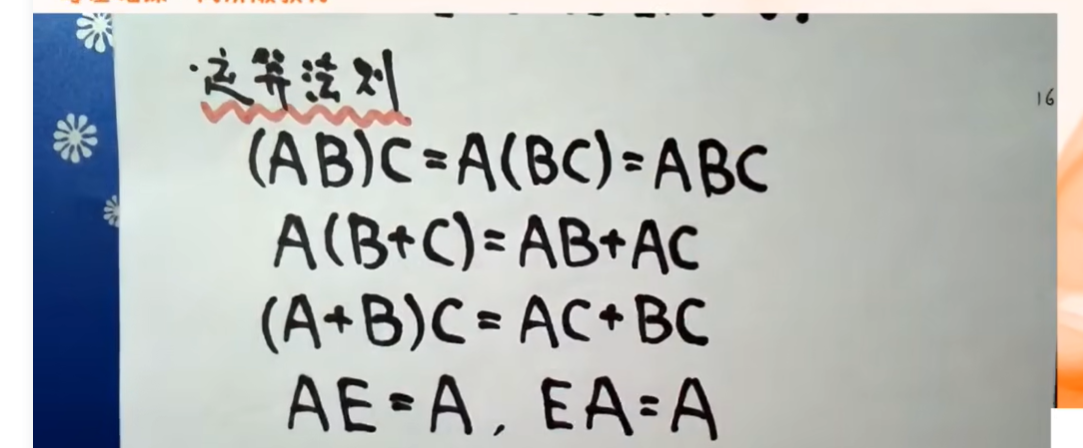 ·运算法则
16
(AB)C=A(BC)=ABC
A(B+C)=AB+AC
(A+B)C=AC+BC
AE=A, EA=A